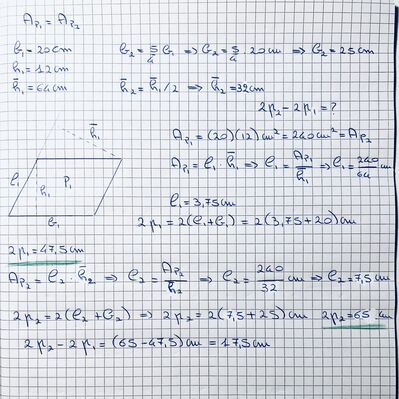 A_P₁ = A_P₂
b₁ = 20 cm
b₂ = 5/4 b₁ ⇒ b₂ = 5/4 · 20 cm ⇒ b₂ = 25 cm
h₁ = 12 cm
h̄₁ = 64 cm
h̄₂ = h̄₁/2 ⇒ h̄₂ = 32 cm
2p₂ − 2p₁ = ?
A_P₁ = (20)(12) cm² = 240 cm² = A_P₂
A_P₁ = l₁ · h̄₁ ⇒ l₁ = A_P₁/h̄₁ ⇒ l₁ = 240/64 cm
h̄₁
l₁
h₁
P₁
b₁
l₁ = 3,75 cm
2p₁ = 2(l₁ + b₁) = 2(3,75 + 20) cm
2p₁ = 47,5 cm
A_P₂ = l₂ · h̄₂ ⇒ l₂ = A_P₂/h̄₂ ⇒ l₂ = 240/32 cm ⇒ l₂ = 7,5 cm
2p₂ = 2(l₂ + b₂) ⇒ 2p₂ = 2(7,5 + 25) cm 2p₂ = 65 cm
2p₂ − 2p₁ = (65 − 47,5) cm = 17,5 cm